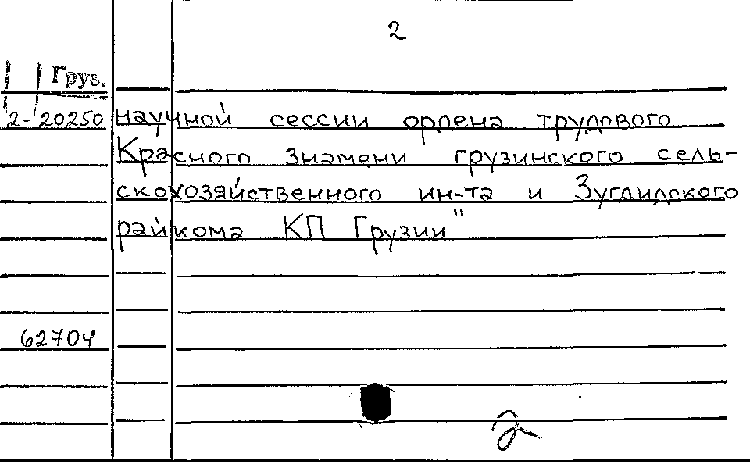 2
Груз.
2-20250 научной сессии ордена трудового
Красного Знамени грузинского сель-
скохозяйственного ин-та и Зугдидского
райкома КП Грузии"
62704